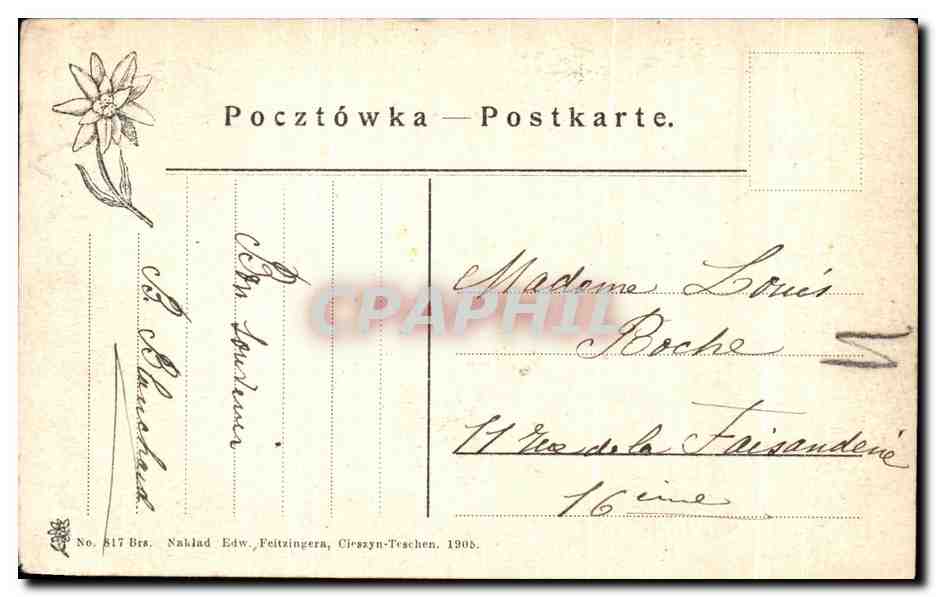 Pocztówka — Postkarte.
Bon souvenir
B. Blanchard.
Madame Louis
Roche
11 rue de la Faisanderie
16ième
No. 817 Brs. Nakład Edw. Feitzingera, Cieszyn-Teschen. 1905.
CPAPHIL